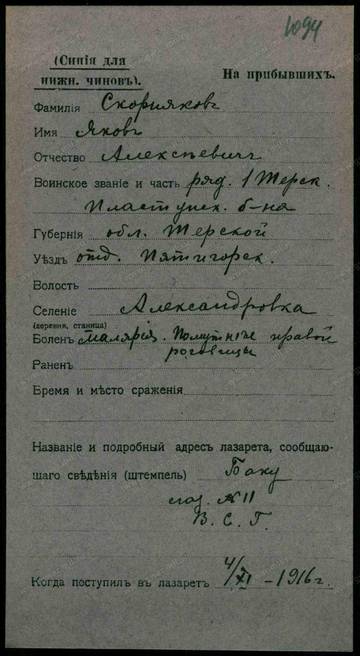 1094
(Синія для
нижн. чиновъ).
На прибывшихъ.
Фамилія Скоряковъ
Имя Яковъ
Отчество Алексѣевичъ
Воинское званіе и часть ряд. 1 Терск.
Пластунск. б-на
Губернія обл. Терской
Уѣздъ отд. Пятигорск.
Волость
Селеніе Александровка
(деревня, станица)
Боленъ малярія. Помутнѣніе правой
роговицы
Раненъ
Время и мѣсто сраженія
Названіе и подробный адресъ лазарета, сообщаю-
щаго свѣдѣнія (штемпель) Баку
лаз. №11
В. С. Г.
Когда поступилъ въ лазаретъ 4/XI - 1916 г.